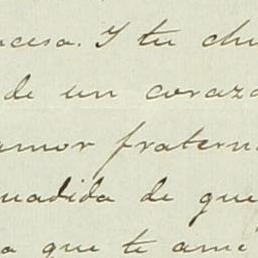 ncesa. Y tu chu
de un coraz
amor fratern
uadida de que
a que te ame